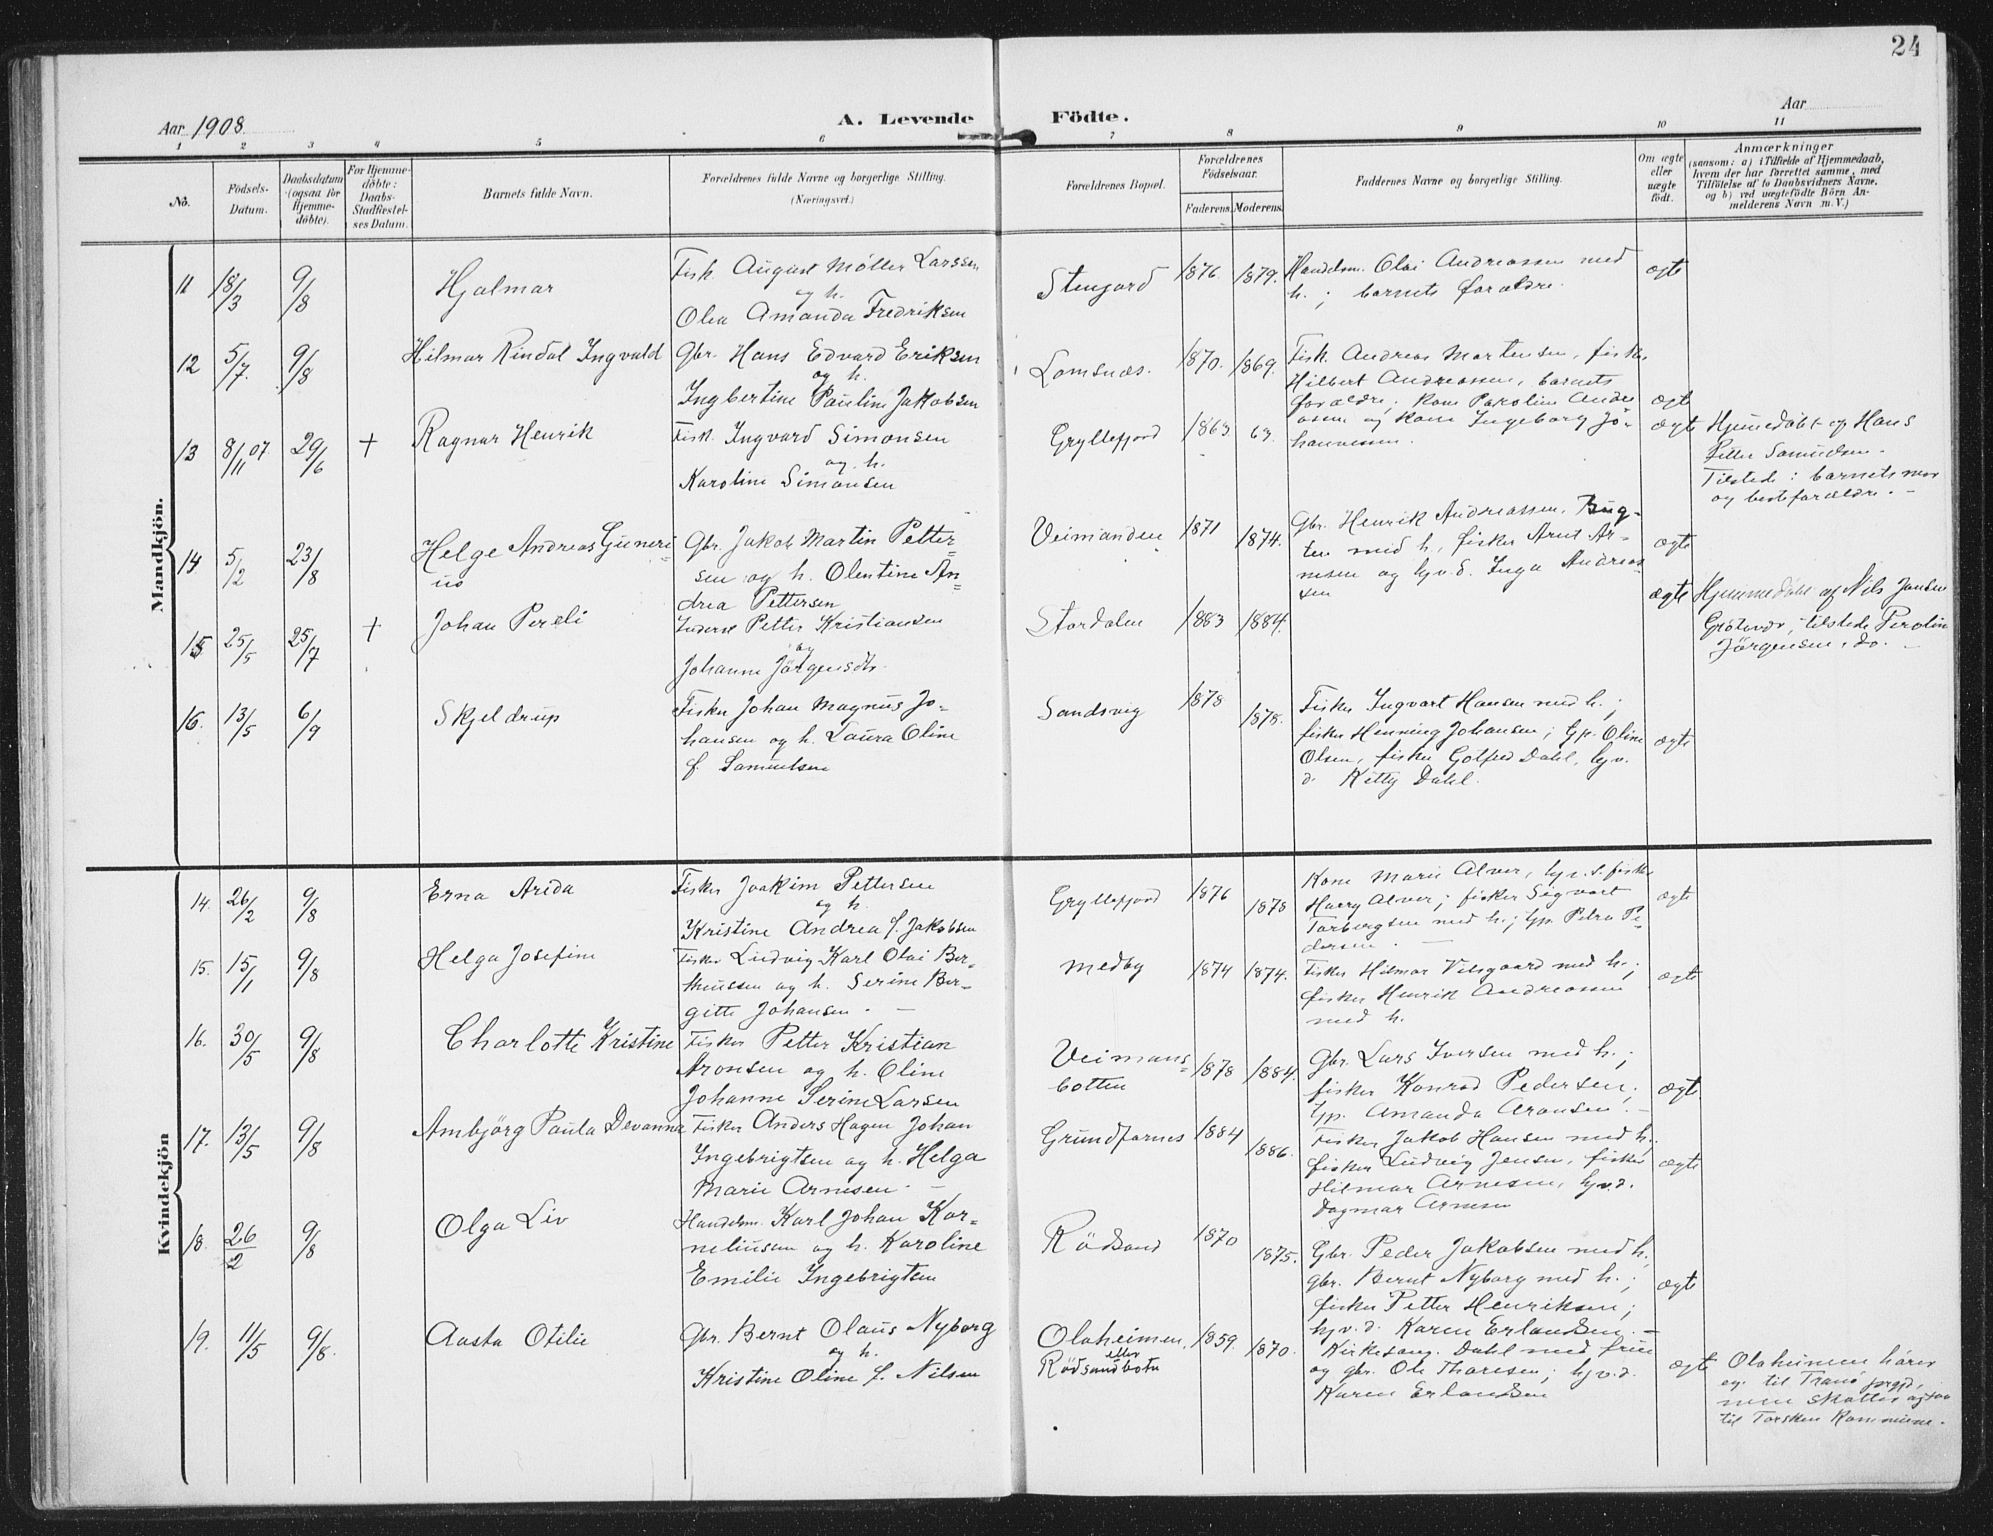 24
Aar 1908
A. Levende Födte.
Aar
1 2 3 4 5 6 7 8 9 10 11
No.
Födsels-Datum.
Daabsdatum (ogsaa for Hjemme-döbte).
For Hjemme-döbte: Daabs-Stadfæstel-ses Datum.
Barnets fulde Navn.
Forældrenes fulde Navne og borgerlige Stilling. (Næringsvei.)
Forældrenes Bopæl.
Forældrenes Födselsaar.
Faderens. Moderens.
Faddernes Navne og borgerlige Stilling.
Om ægte eller uægte födt.
Anmærkninger
(saasom: a) i Tilfælde af Hjemmedaab,
hvem der har forrettet samme, med
Tilföielse af to Daabsvidners Navne,
og b) ved uægtefödte Börn An-
melderens Navn m. V.)
Mandkjön.
11 18/3 9/8 Hjalmar
Fisk. August Möller Larssen
og h.
Olea Amanda Fredriksen
Stengard 1876. 1879.
Handelsm. Olai Andreassen med
h.; barnets forældre.
ægte
12 5/7. 9/8 Hilmar Rindal Ingvald
Gbr. Hans Edvard Eriksen
og h.
Ingbertine Pauline Jakobsen
Lomsnæs. 1870. 1869.
Fisk. Andreas Martensen, fisker
Hilbert Andreassen, barnets
forældre; kone Karoline Andre
asen og kone Ingeborg Jo-
hannesen.
ægte
13 8/11 07. 29/6 + Ragnar Henrik
Fisk. Ingvard Simonsen
og h.
Karoline Simonsen
Gryllefjord 1863 63.
ægte
Hjemedöbt af Hans
Petter Samuelsen.
Tilstede: barnets mor
og bedsteforældre. -
14 5/2 23/8 Helge Andreas Guneri-
us
Gbr. Jakob Martin Petter-
sen og h. Olentine An-
drea Pettersen
Veimanden 1871 1874.
Gbr. Henrik Andreassen, Bug-
ten med h., fisker Arnt Ar-
nesen og hv. d. Inga Andreas-
sen
ægte
15 25/5 25/7 + Johan Pereli
Inderst Petter Kristiansen
og
Johanne Jörgensdtr.
Stordalen 1883 1884.
ægte
Hjemmedöbt af Nils Jansen
Grötavær, tilstede Perolin
Jörgensen, do. -
16. 13/5 6/9 Skjeldrup
Fisker Johan Magnus Jo-
hansen og h. Laura Oline
f. Samuelsen
Sandsvig 1878 1878.
Fisker Ingvart Hansen med h.;
fisker Henning Johansen; tjp. Oline
Olsen, fisker Gotfred Dahl, hjv.
d. Kitty Dahl.
ægte
Kvindekjön
14. 26/2 9/8 Erna Arida
Fisker Joakim Pettersen
og h.
Kristine Andrea f. Jakobsen
Gryllefjord 1876 1878
Kone Marie Alver, hjv. s. fisker
Harry Alver; fisker Sigvart
Torbergsen med h.; tjp. Petra Pe-
dersen. -
ægte
15. 15/1 9/8 Helga Josefine
Fisker Ludvig Karl Olai Ber-
theussen og h. Serine Ber-
gitte Johansen. -
Medby 1874 1874.
Fisker Hilmar Vilsgaard med h.;
fisker Henrik Andreassen
med h.
ægte
16. 30/5 9/8 Charlotte Kristine
Fisker Petter Kristian
Aronsen og h. Oline
Johanne Serine Larsen
Veimans-
botten 1878 1884.
Gbr. Lars Iversen med h.;
fisker Konrad Pedersen;
tjp. Amanda Aronsen. -
ægte
17. 13/5 9/8 Ambjörg Paula Devanna
Fisker Anders Hagen Johan
Ingebrigtsen og h. Helga
Marie Arnesen. -
Grundfarnes 1884 1886.
Fisker Jakob Hansen med h.;
fisker Ludvig Jensen, fisker
Hilmar Arnesen, hjv. d.
Dagmar Arnesen
ægte
18. 26/2 9/8 Olga Liv
Handelsm. Karl Johan Kor-
neliusen og h. Karoline
Emilie Ingebrigtsen
Rödsand 1870 1875.
Gbr. Peder Jakobsen med h.,
gbr. Bernt Nyborg med h.;
fisker Petter Henriksen;
hjv. d. Karen Erlandsen. -
ægte
19. 11/5 9/8. Aasta Otilie
Gbr. Bernt Olaus Nyborg
og h.
Kristine Oline f. Nilsen
Olaheimen,
eller
Rödsandbotn 1859. 1870.
Kirkesang. Dahl med frue
og gbr. Ole Thoresen; hjv. d.
Karen Erlandsen
ægte
Olaheimen hörer
eg. til Tranö prgjd,
men skatter ogsaa
til Torsken Kommune.